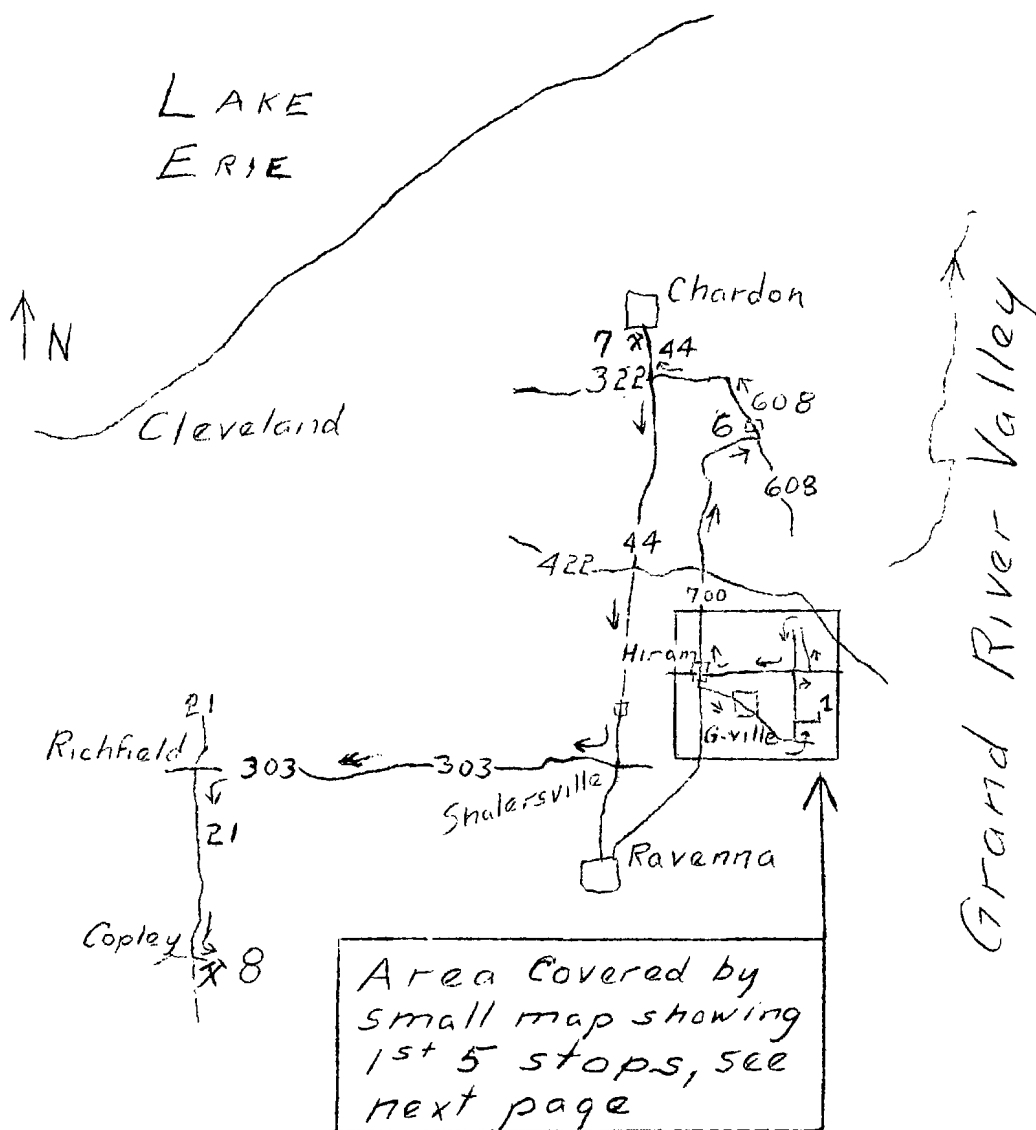 LAKE
ERIE
N
Chardon
7 x 44
322
Cleveland
608
6
608
44
422
700
Hiram
1
G-ville 2
21
Richfield
303 303
Shalersville
21
Ravenna
Copley
x 8
Grand River Valley
Area Covered by
small map showing
1st 5 stops, see
next page